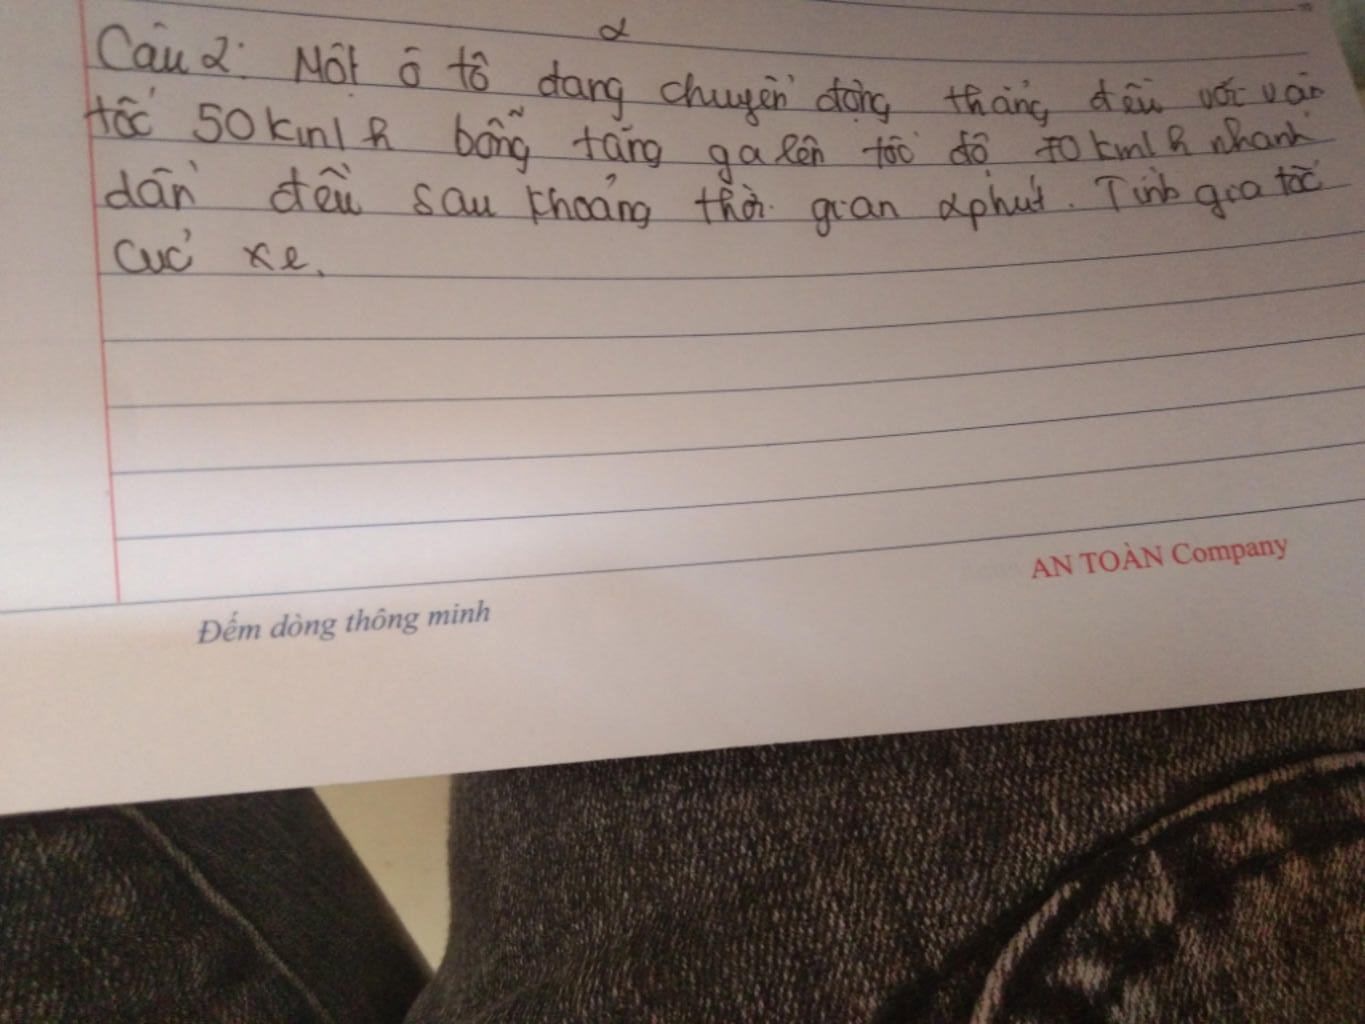 2
Câu 2: Một ô tô đang chuyển động thẳng đều với vận
tốc 50km/h bỗng tăng ga lên tốc độ 70km/h nhanh
dần đều sau khoảng thời gian 2phút. Tính gia tốc
cuả xe.
AN TOÀN Company
Đếm dòng thông minh